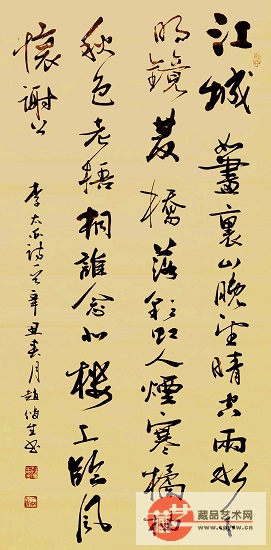 江城如畫裏山晚望晴空兩水夾
明鏡雙橋落彩虹人煙寒橘柚
秋色老梧桐誰念北樓上臨風
懷謝公
李太白詩一首辛丑春月趙生書
藏品艺术网